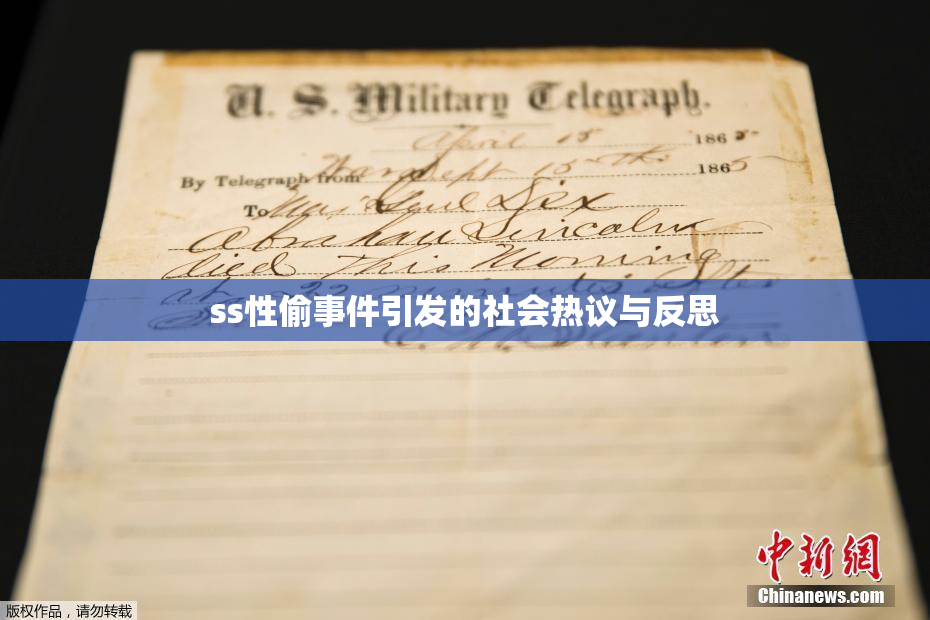 U. S. Military Telegraph.
April 15 1865
By Telegraph from War Dept 15th 1865
To Maj Genl Dix
Abraham Lincoln
died This Morning
at 22 minutes after
ss性偷事件引发的社会热议与反思
E. M. Stanton
中新網
Chinanews.com
版权作品,请勿转载